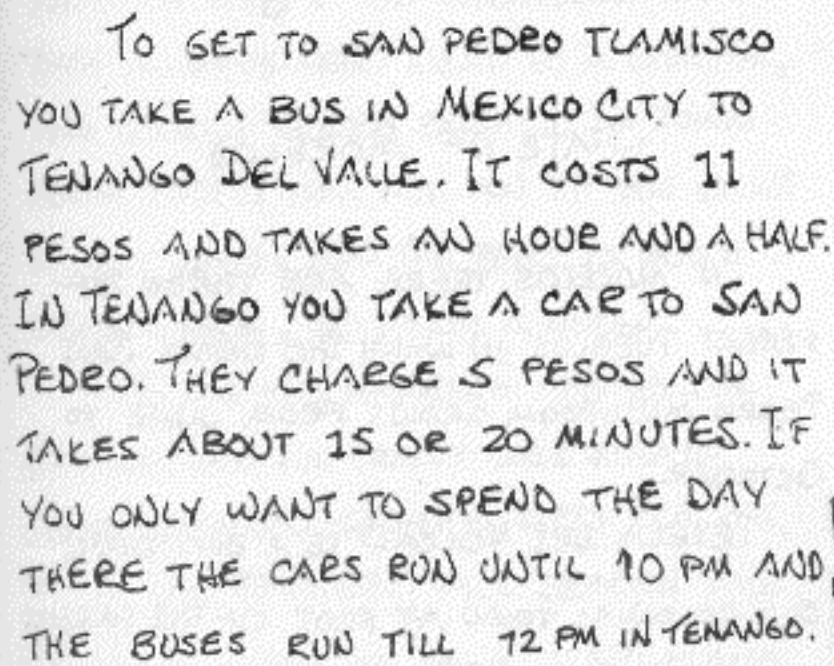 To GET TO SAN PEDRO TLAMISCO
YOU TAKE A BUS IN MEXICO CITY TO
TENANGO DEL VALLE. IT COSTS 11
PESOS AND TAKES AN HOUR AND A HALF.
IN TENANGO YOU TAKE A CAR TO SAN
PEDRO. THEY CHARGE 5 PESOS AND IT
TAKES ABOUT 15 OR 20 MINUTES. IF
YOU ONLY WANT TO SPEND THE DAY
THERE THE CARS RUN UNTIL 10 PM AND
THE BUSES RUN TILL 12 PM IN TENANGO.